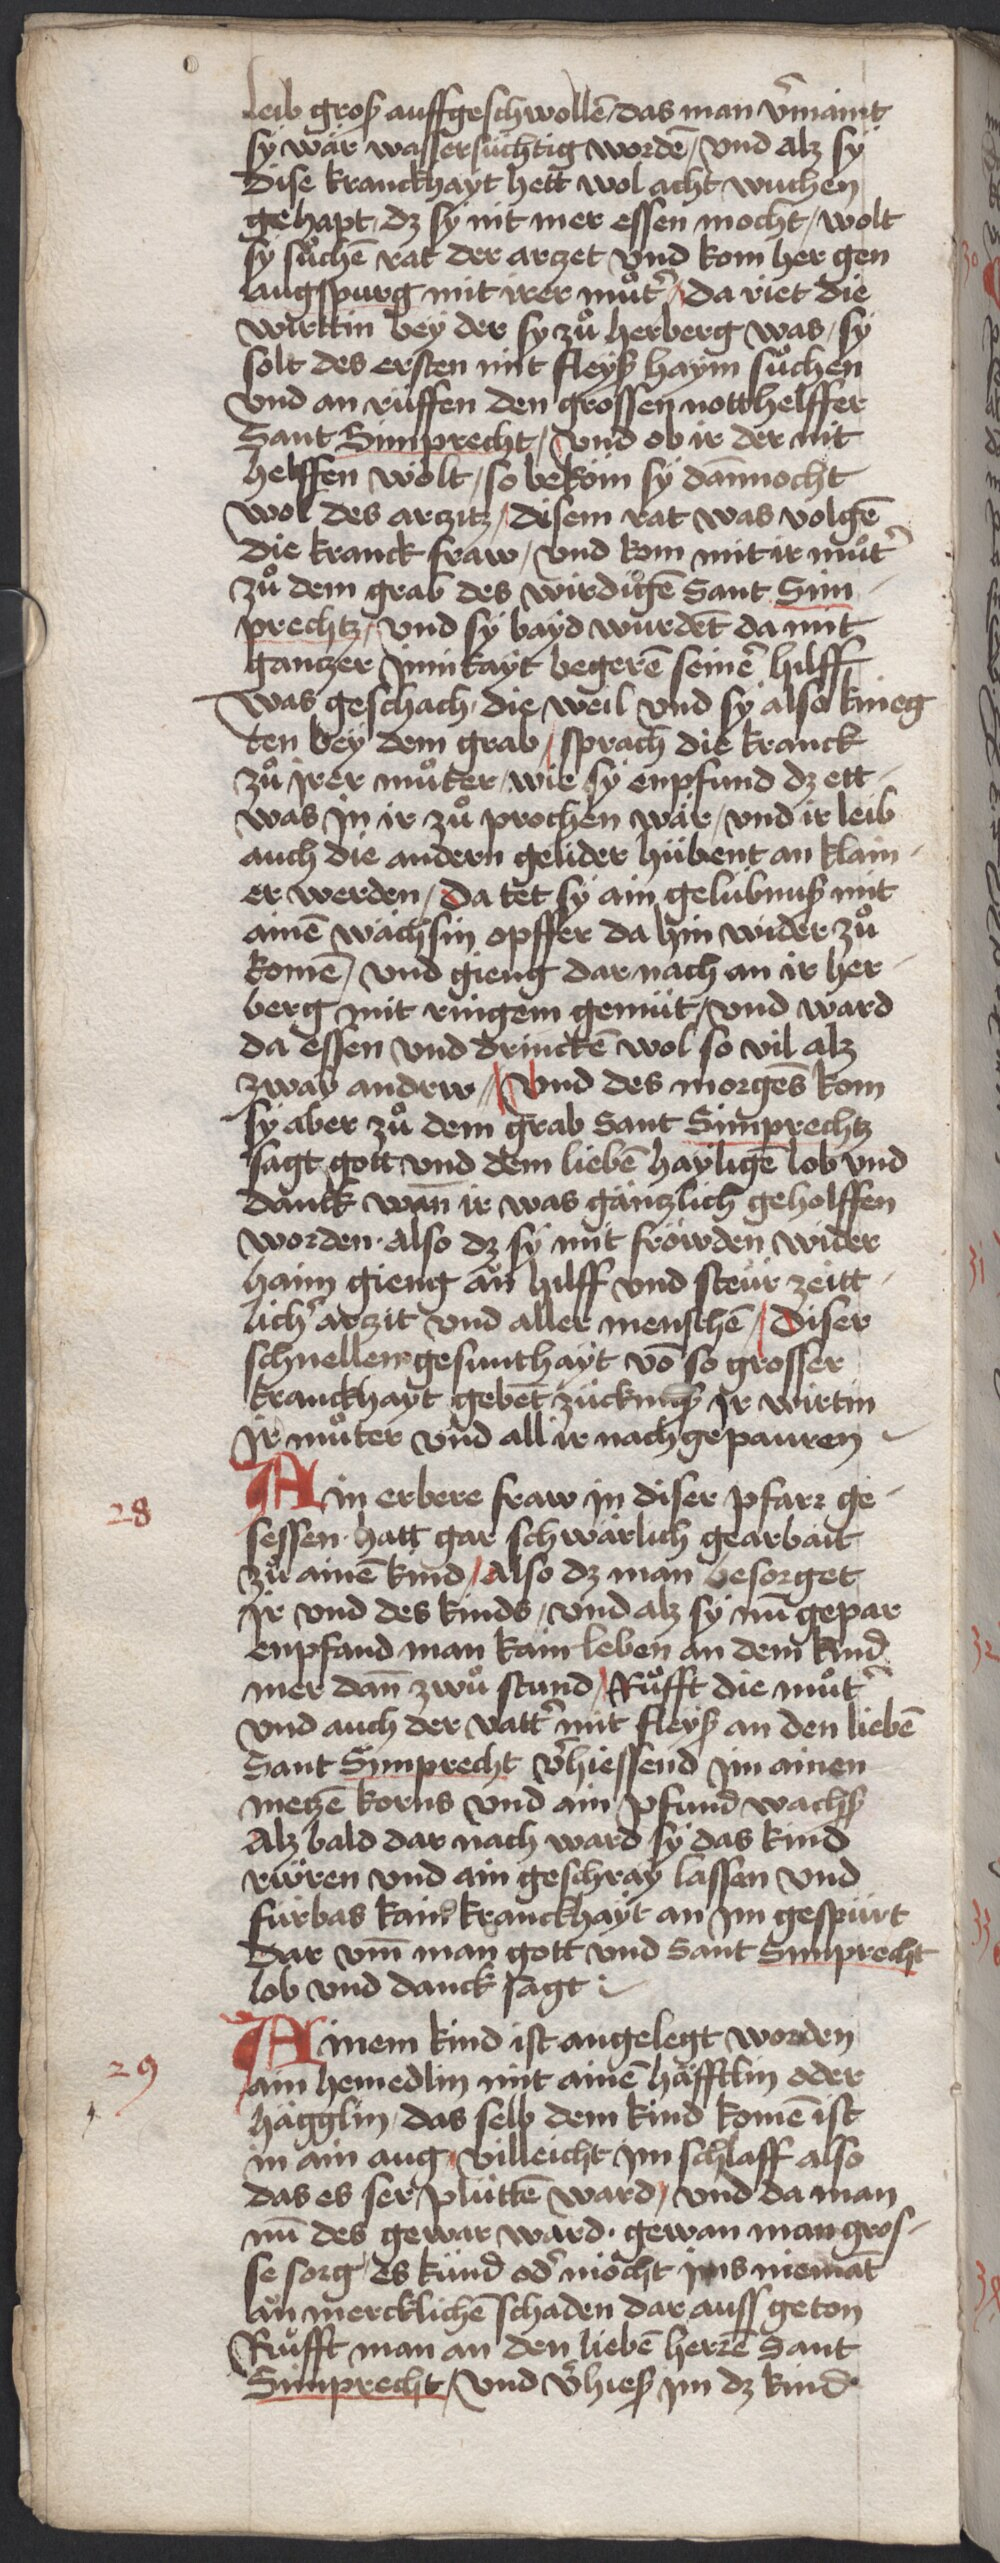 leib groß auffgeschwollē / das man v̄maint
sÿ wär wassersüchtig wordē / vnd alz sÿ
dise kranckhaÿt hett wol acht wuchen
gehapt / dz sÿ nit mer essen mocht / wolt
sÿ sůchē rat der arczet vnd kom her gen
augspurg mit irer můt̄ / da riet die
wirttin beÿ der sÿ zů herberg was / sÿ
solt des ersten mit fleÿß haÿm sůchen
vnd an rüffen den grossen notthelffer
Sant Simprecht / vnd ob ir der nit
helffen wölt / so beköm sÿ dānnocht
wol des arczitz / disem rat was volgē
die kranck fraw / vnd kom mit ir můt̄
zů dem grab des wirdigē Sant Sim
prechtz / vnd sÿ baÿd wurdēt da mit
ganczer jnnikaÿt begerē seinē hilff
was geschach / die weil vnd sÿ also knieg
ten beÿ dem grab / sprach die kranck
zů irer můter / wie sÿ enpfund dz ett
was jn ir zů prochen wär / vnd ir leib
auch die andern gelider hübent an klain
er werden / Da tet sÿ ain gelübnuß mit
ainē wächsin opffer da hin wider zů
komē / vnd gieng dar nach an ir her
berg mit ringem gemüt / vnd ward
da essen vnd drinckē wol so vil alz
zwaÿ andrw / vnd des morgēs kom
sÿ aber zů dem grab Sant Simprechtz
sagt gott vnd dem liebē haÿligē lob vnd
danck wān ir was gänczlich geholffen
worden · Also dz sÿ mit fröwden wider
haim gieng ān hilff vnd steür zeitt
lich̄ arczit vnd aller menschē / diser
schnellen gesunthaÿt vō so grosser
kranckhaÿt gebēt zücknuß Ir wirtin
Ir můter vnd all ir nachgepauren
28 Ain erbere fraw jn diser pfarr ge
sessen · hatt gar schwärlich gearbait
zů ainē kind / Also dz man besorget
ir vnd des kinds / vnd alz sÿ nū gepar
enpfand man kain leben an dem kind
mer dān zwů stund / Růfft die můt̄
vnd auch der vatt̄ mit fleÿß an den liebē
Sant Simprecht v̄hiessend im ainen
meczē korns vnd ain pfund wachß
Alz bald dar nach ward sÿ das kind
rwren vnd ain geschraÿ lassen vnd
fürbas kain kranckhaÿt an im gespürt
Dar vm̄ man gott vnd Sant Simprecht
lob vnd danck sagt
29 Ainem kind ist angelegt worden
ain hemedlin mit ainē häfftlin oder
hägglin / das selb dem kind komē ist
in ain aug / villeicht im schlaff also
das es ser plüttē ward / vnd da man
nū des gewar ward · gewan man gros
se sorg / es künd od̄ möcht ims niemāt
ān mercklichē schaden dar auss geton
Růfft man an den liebē herrē Sant
Simprecht / vnd v̄hieß im dz kind